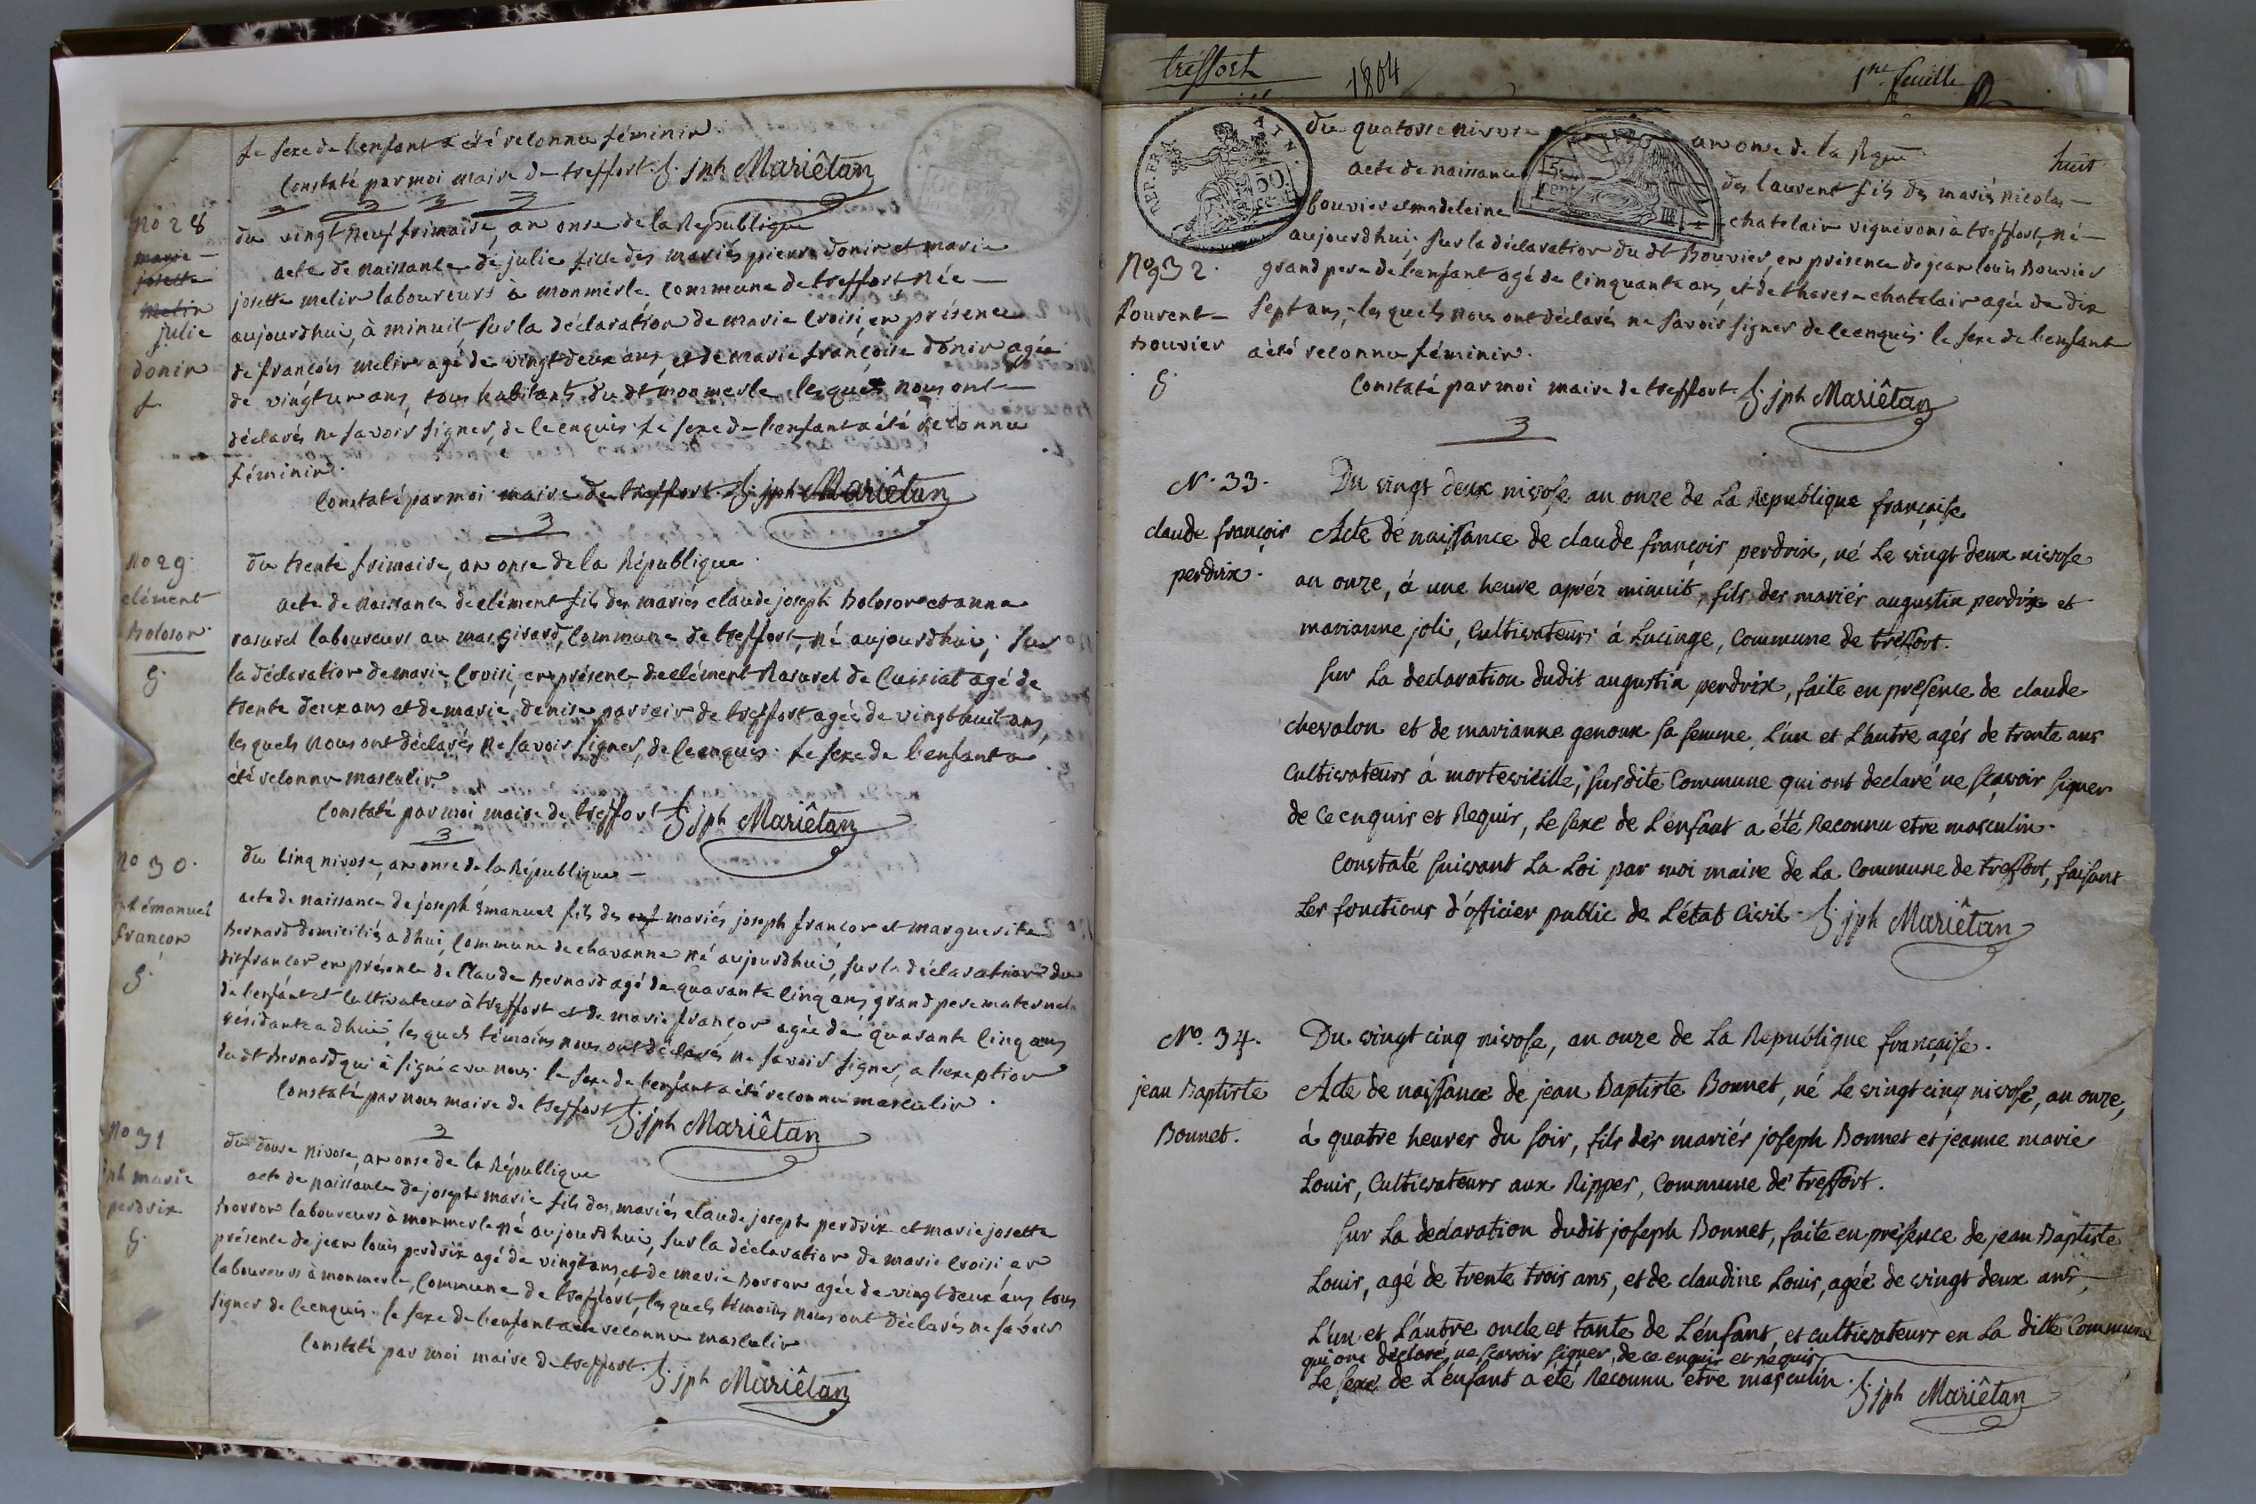 le sexe de l'enfant a été reconnu féminin
Constaté par moi maire de treffort. jph Mariêtan
no 28
marie
josette
melin
julie
donin
f
du vingt neuf frimaire, an onse de la République
acte de naissance de julie fille des mariés pierre donin et marie
josette melin laboureurs à monmerle commune de treffort née
aujourdhui, à minuit, sur la déclaration de marie Croisi, en présence
de françois melin agé de vingt deux ans, et de marie françoise donin agée
de vingt un ans, tous habitants du dt monmerle lesquels nous ont
déclarés ne savoir signer, de ce enquis. le sexe de l'enfant a été reconnu
féminin.
Constaté par moi maire de treffort. jph Mariêtan
no 29.
clément
Bolosor
g.
du trente frimaire, an onse de la République
acte de naissance de clément fils des mariés claude joseph Bolosor et anna
rasurel laboureurs au mas girard, commune de treffort, né aujourdhui, sur
la déclaration de marie Croisi, en présence de clément Rasurel de Cuisiat agé de
trente deux ans et de marie denise de treffort agée de vingt huit ans,
les quels nous ont déclarés ne savoir signer, de ce enquis. le sexe de l'enfant a
été reconnu masculin
Constaté par moi maire de treffort jph Mariêtan
no 30.
jph émanuel
francon
g.
du cinq nivose, an onse de la République
acte de naissance de joseph Émanuel fils des mariés joseph francon et marguerite
Bernard domiciliés a dhui, commune de chavanne né aujourdhui, sur la déclaration du
dit francon en présence de Claude Bernard agé de quarante cinq ans, grand pere maternel
de l'enfant et cultivateur à treffort et de marie francon agée de quarante cinq ans
résidante a dhui, les quels témoins nous ont déclarés ne savoir signer, a l'exeption
du dt Bernard qui à signé avec nous. le sexe de l'enfant a été reconnu masculin.
Constaté par nous maire de treffort jph Mariêtan
no 31
jph marie
perdrix
g.
du douse nivose, an onse de la République
acte de naissance de joseph marie fils des mariés claude joseph perdrix et marie josette
Borron laboureurs à monmerle né aujourdhui, sur la déclaration de marie Croisi en
présence de jean louis perdrix agé de vingt ans, et de marie Borron agée de vingt deux ans tous
laboureurs à monmerle, commune de treffort, les quels témoins nous ont déclarés ne savoir
signer de ce enquis. le sexe de l'enfant a été reconnu masculin
Constaté par moi maire de treffort. jph Mariêtan
treffort 1804 1re feuille
du quatorse nivose an onse de la Rque huit
acte de naissance des laurent fils des mariés nicolas
bouvier et madeleine chatelain vignerons à treffort, né
aujourdhui, sur la déclaration du dt Bouvier, en présence de jean louis Bouvier
no 32.
Lourent
Bouvier
g.
grand pere de l'enfant agé de cinquante ans, et de therese chatelain agée de dix
sept ans, les quels nous ont déclarés ne savoir signer de ce enquis. le sexe de l'enfant
a été reconnu féminin.
Constaté par moi maire de treffort. jph Mariêtan
N. 33.
claude françois
perdrix.
Du vingt deux nivose an onze de La République française
Acte de naissance de claude françois perdrix, né Le vingt deux nivose
an onze, à une heure aprés minuit, fils des mariés augustin perdrix et
marianne joli, cultivateurs à Lucinge, commune de treffort.
sur La declaration dudit augustin perdrix, faite en presence de claude
chevalon et de marianne genoux sa femme, L'un et L'autre agés de trente ans
cultivateurs à mortevieille, susdite commune qui ont declaré ne sçavoir signer
de ce enquis et Requis, Le sexe de L'enfant a été Reconnu etre masculin.
Constaté suivant La Loi par moi maire de La Commune de treffort, faisant
Les fonctions d'officier public de L'état Civil. jph Mariêtan
No. 34.
jean Baptiste
Bonnet.
Du vingt cinq nivose, an onze de La République française.
Acte de naissance de jean Baptiste Bonnet, né Le vingt cinq nivose, an onze,
à quatre heures du soir, fils des mariés joseph Bonnet et jeanne marie
Louis, cultivateurs aux Rippes, commune de treffort.
sur La declaration dudit joseph Bonnet, faite en présence de jean Baptiste
Louis, agé de trente trois ans, et de claudine Louis, agée de vingt deux ans,
L'un et L'autre oncle et tante de L'enfant, et cultivateurs en La ditte Commune
qui ont déclaré ne scavoir signer, de ce enquis et réquis
Le sexe de L'enfant a été Reconnu etre masculin. jph Mariêtan